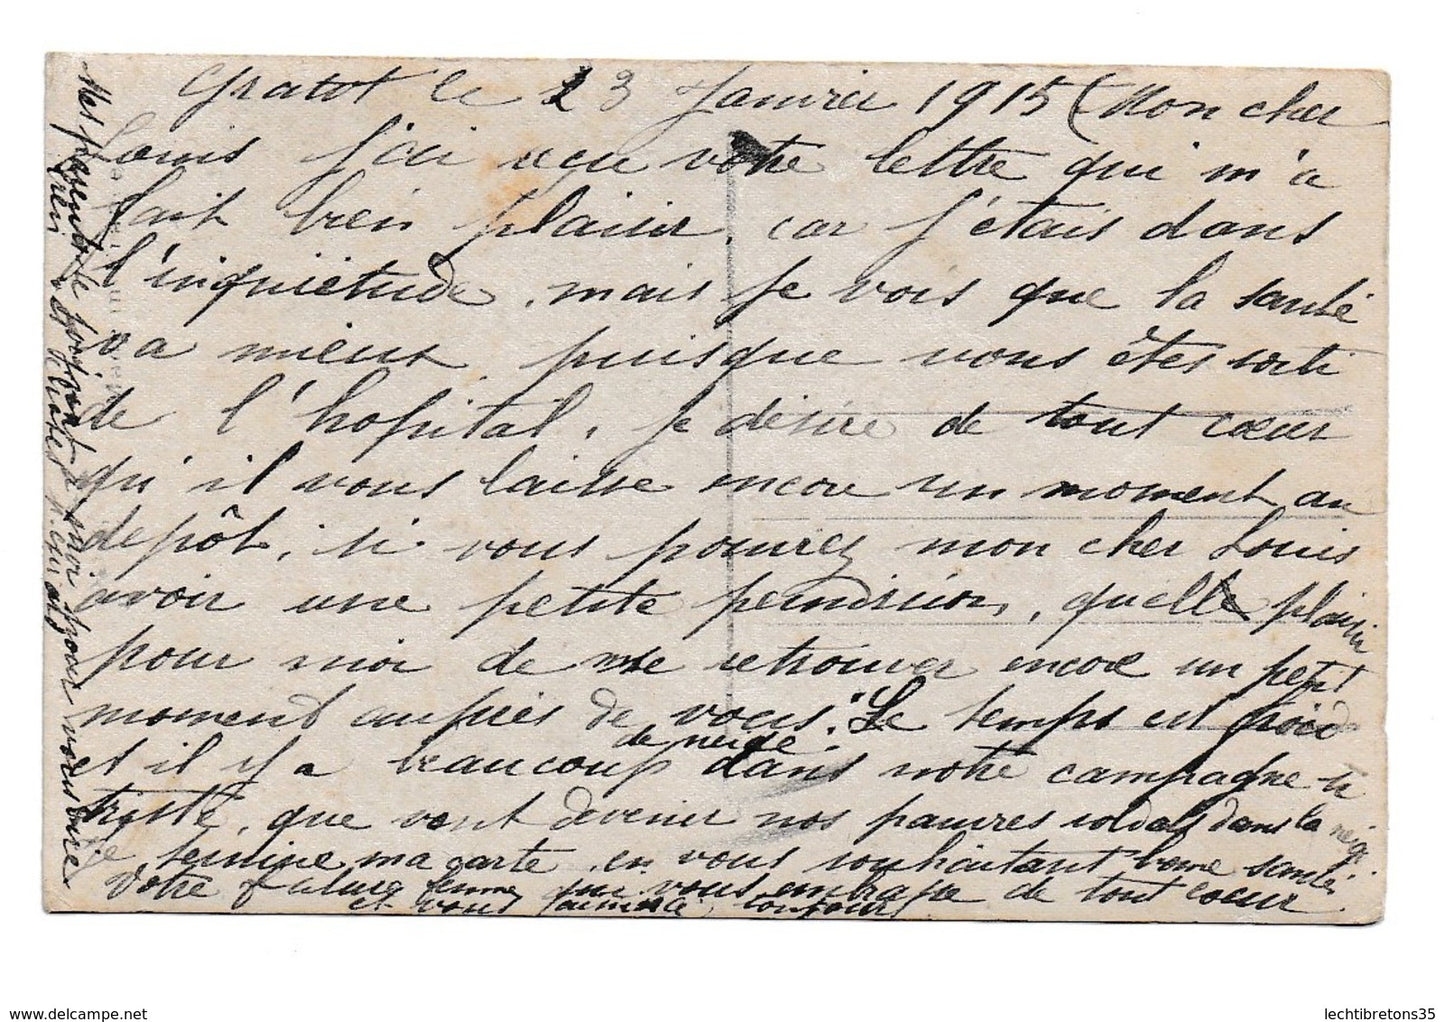 Gratot le 23 Janvier 1915 (Mon cher
Louis J'ai reçu votre lettre qui m'a
fait bien plaisir car j'étais dans
l'inquiétude, mais je vois que la santé
va mieux puisque vous êtes sorti
de l'hopital, je désire de tout cœur
qu'il vous laisse encore un moment au
depôt, si vous pouvez mon cher Louis
avoir une petite quelle plaisir
pour moi de me retrouver encore un petit
moment auprès de vous. Le temps est froid
et il y a beaucoup de neige dans notre campagne si
triste, que vont devenir nos pauvres soldats dans la neige
je termine ma carte en vous souhaitant bonne santé
Votre future femme qui vous embrasse de tout cœur
et vous aime toujours
Mes parents se joignent à moi pour vous dire
bien des choses
www.delcampe.net
lechtibretons35